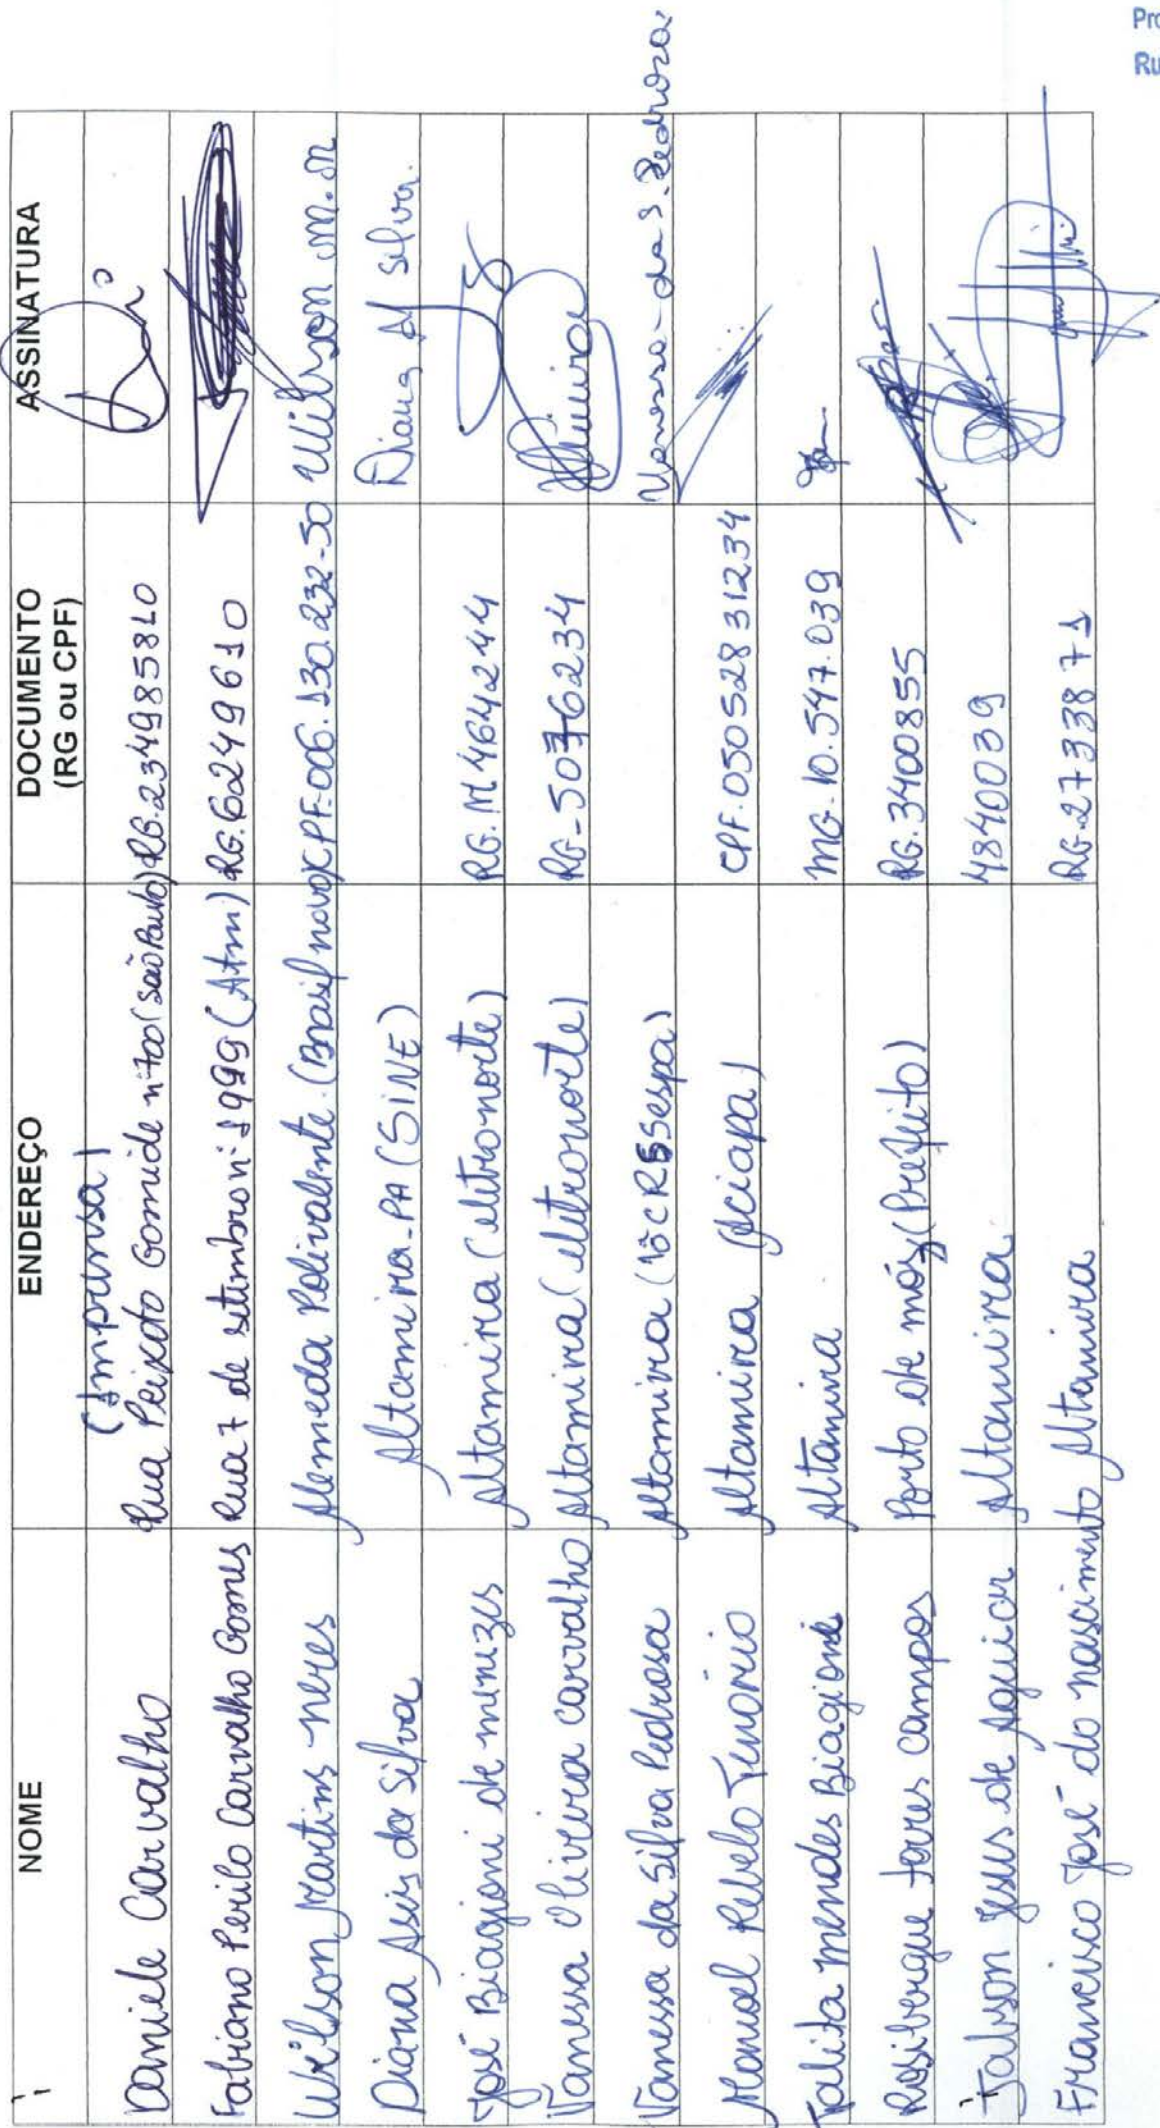 NOME ENDEREÇO DOCUMENTO (RG ou CPF) ASSINATURA
Daniele Carvalho (Imprensa) Rua Peixoto Gomide nº 700 (São Paulo) RG.234985810
Fabiano Perilo Carvalho Gomes Rua 7 de setembro nº 1999 (Atm) RG.6249610
Wilson Martins neres Alameda Polivalente. (Brasil novo) CPF.006.130.232-50 Wilson M. N
Diana Assis da Silva Altamira-PA (SINE) Diana A Silva.
José Biagioni de minezes Altamira (eletronorte) RG.M4644244
Vanessa Oliveira carvalho Altamira (eletronorte) RG-50376234
Vanessa da Silva Pedrosa Altamira (10º CRSSespa) Vanessa da S. Pedrosa
Manoel Rebelo Tenório Altamira (Aciapa) CPF.05052831234
Talita mendes Biagioni Altamira MG.10.547.039
Rosibergue torres campos Porto de móz (Prefeito) RG.3400855
Joabson Jesus de Aguiar Altamira 4840039
Francisco José do nascimento Altamira RG.27338871
Pro
Ru